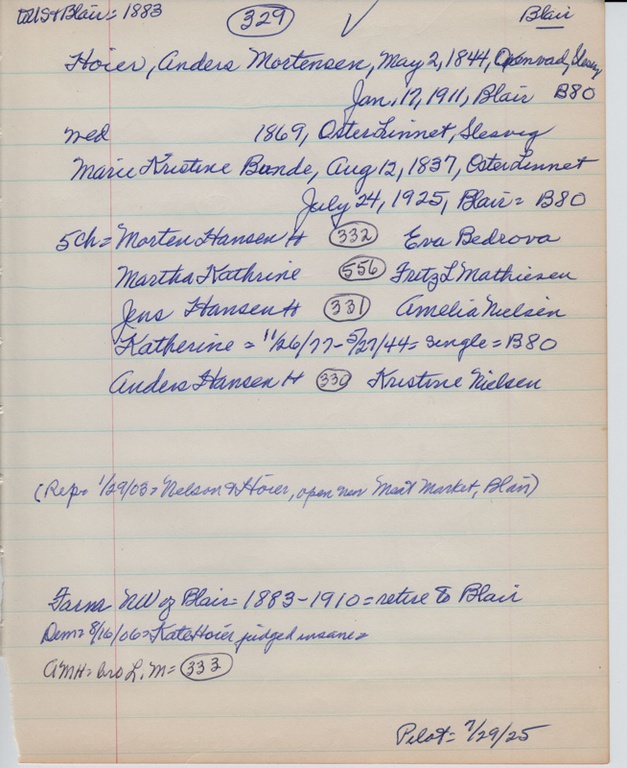 to US & Blair = 1883 329 ✓ Blair
Hoier, Anders Mortensen, May 2, 1844, Openvad, Slesvig
Jan. 17, 1911, Blair B80
wed 1869, OsterLinnet, Slesvig
Marie Kristine Bunde, Aug 12, 1837, OsterLinnet
July 24, 1925, Blair = B80
5 Ch = Morten Hansen H 332 Eva Bedrova
Martha Kathrine 556 Fritz L Mathiesen
Jens Hansen H 331 Amelia Nielsen
Katherine = 11/26/77 - 5/27/44 = single = B80
Anders Hansen H 330 Kristine Nielsen
(Rep = 1/29/03 = Nelson & Hoier, open new Meat Market, Blair)
Farm NW of Blair = 1883 - 1910 = retire to Blair
Dem = 8/16/06 = Kate Hoier judged insane =
AMH = bro L.M = 333
Pilot = 7/29/25